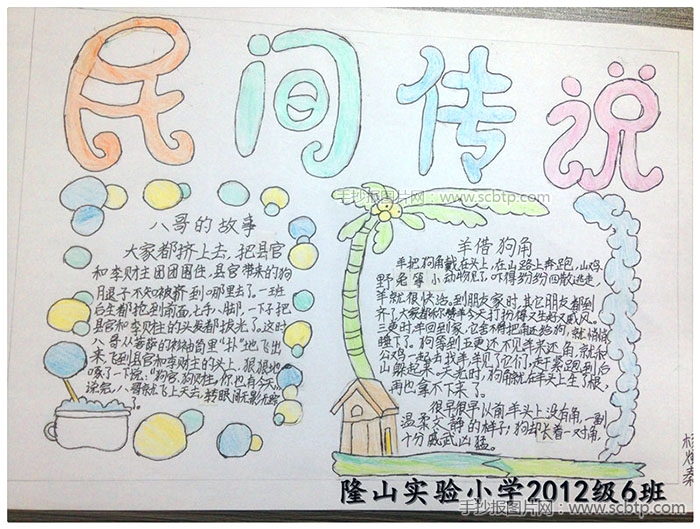 民间传说
手抄报图片网：www.scbtp.com
八哥的故事
大家都挤上去，把县官
和李财主团团围住，县官带来的狗
腿子不知被挤到哪里去了。一班
后生都抢到前面，七手八脚，一下子把
县官和李财主的头发都拔光了。这时
八哥从菩萨的衫袖筒里“扑”地飞出
来，飞到县官和李财主的头上，狠狠地
啄了一下说：“狗官，狗财主，你也有今天！”
说完，八哥就飞上天去，转眼闹无影无踪
羊借狗角
羊把狗角戴在头上，在山路上奔跑，山鸡
野兔等小动物见了，吓得纷纷四散逃走，
羊就很快活。到朋友家时，其它朋友都到
齐了，大家都称赞羊今天打扮得又生好又威风。
三更时羊回到家，它舍不得把角还给狗，就悄悄
睡下了。狗等到五更还不见羊来还角，就和
公鸡一起去找羊，羊见了它们，赶紧跑到后
山躲起来。天光时，狗角就在羊头上生了根，
再也拿不下来了。
很早很早以前，羊头上没有角，一副
温柔文静的样子，狗却长着一对角，
十分威武凶猛。
隆山实验小学2012级6班
手抄报图片网：www.scbtp.com